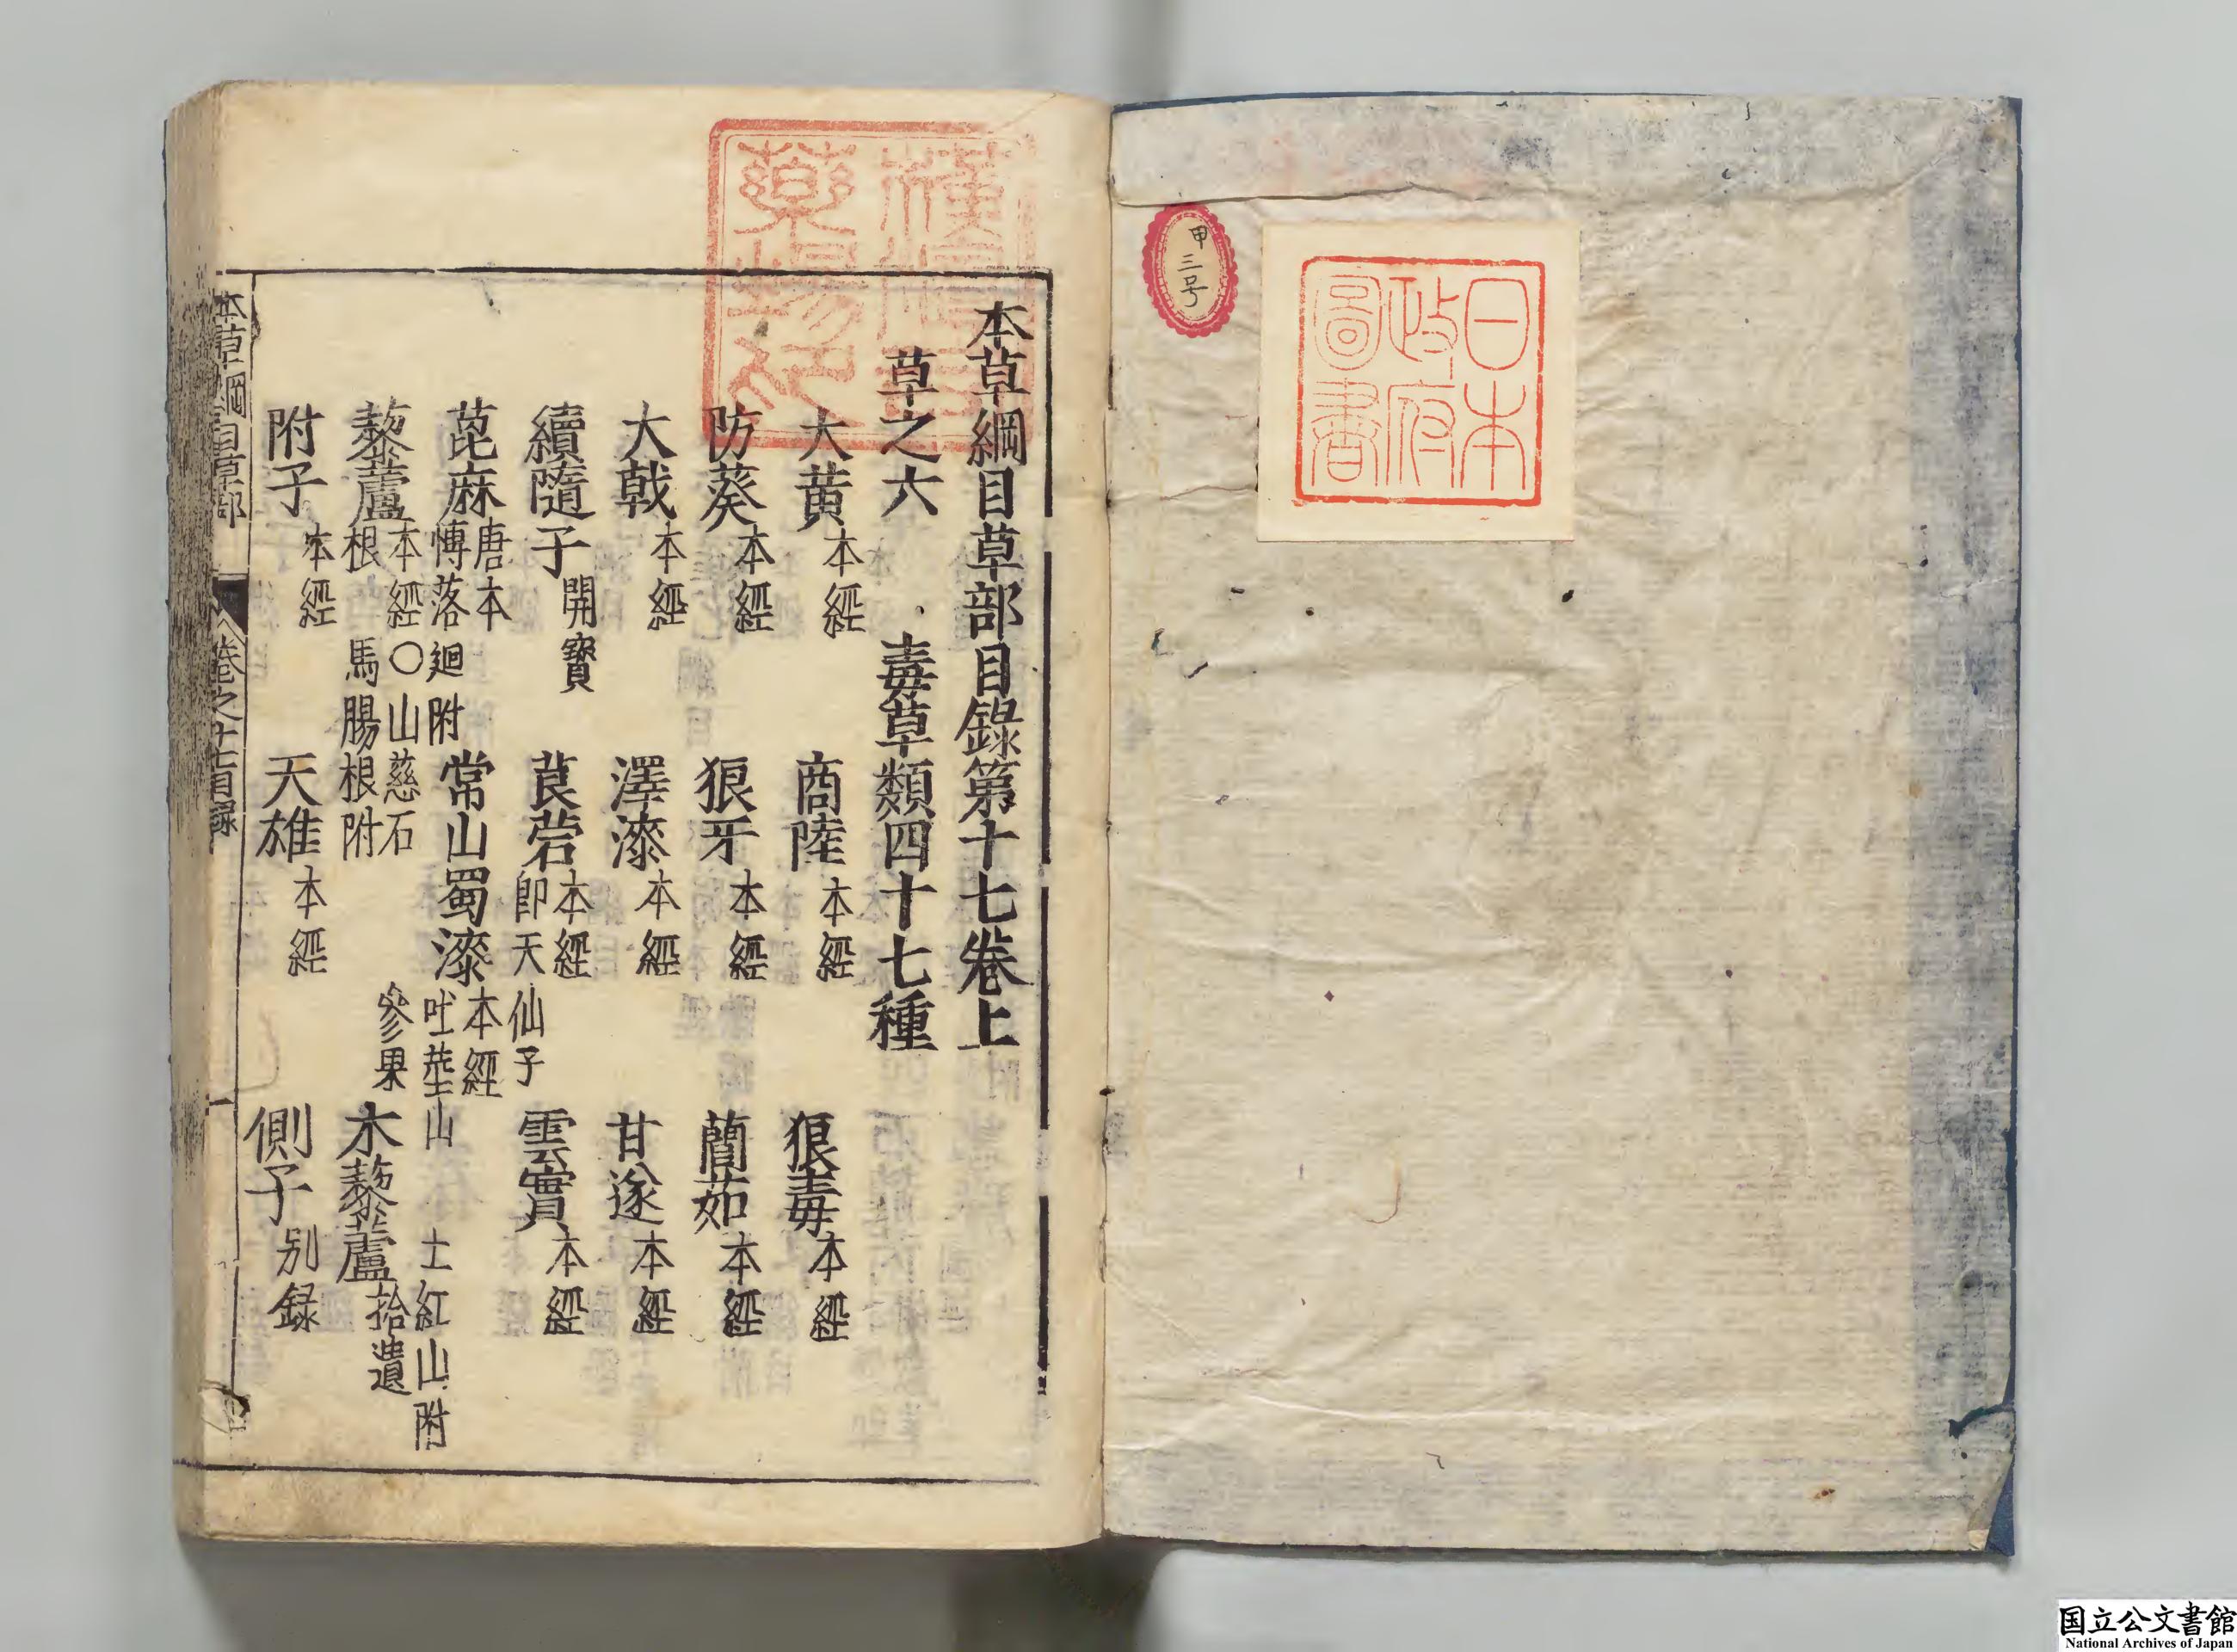 甲三号
日本
政府
圖書
本草綱目草部目錄第十七卷上
草之六　毒草類四十七種
大黃本經　商陸本經　狼毒本經
防葵本經　狼牙本經　䕡茹本經
大戟本經　澤漆本經　甘遂本經
續隨子開寶　莨菪本經即天仙子　雲實本經
蓖麻唐本博落迴附　常山蜀漆本經吐𦺰山　土紅山附
藜蘆本經〇山慈石根馬腸根附　參果　木藜蘆拾遺
附子本經　天雄本經　側子別録
本草綱目草部　卷之十七目録　一
国立公文書館
National Archives of Japan